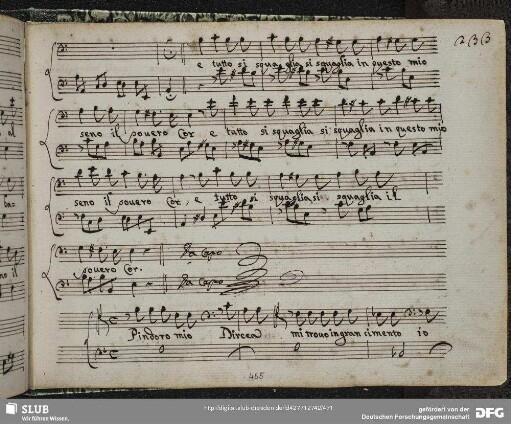 e tutto si squaglia si squaglia in questo mio
seno il povero Cor e tutto si squaglia si squaglia in questo mio
seno il povero Cor, e tutto si squaglia, si squaglia il
povero Cor. Da Capo
Da Capo
Pindoro mio Dircea mi trovo in gran cimento io
455
SLUB
Wir führen Wissen.
gefördert von der
Deutschen Forschungsgemeinschaft
DFG